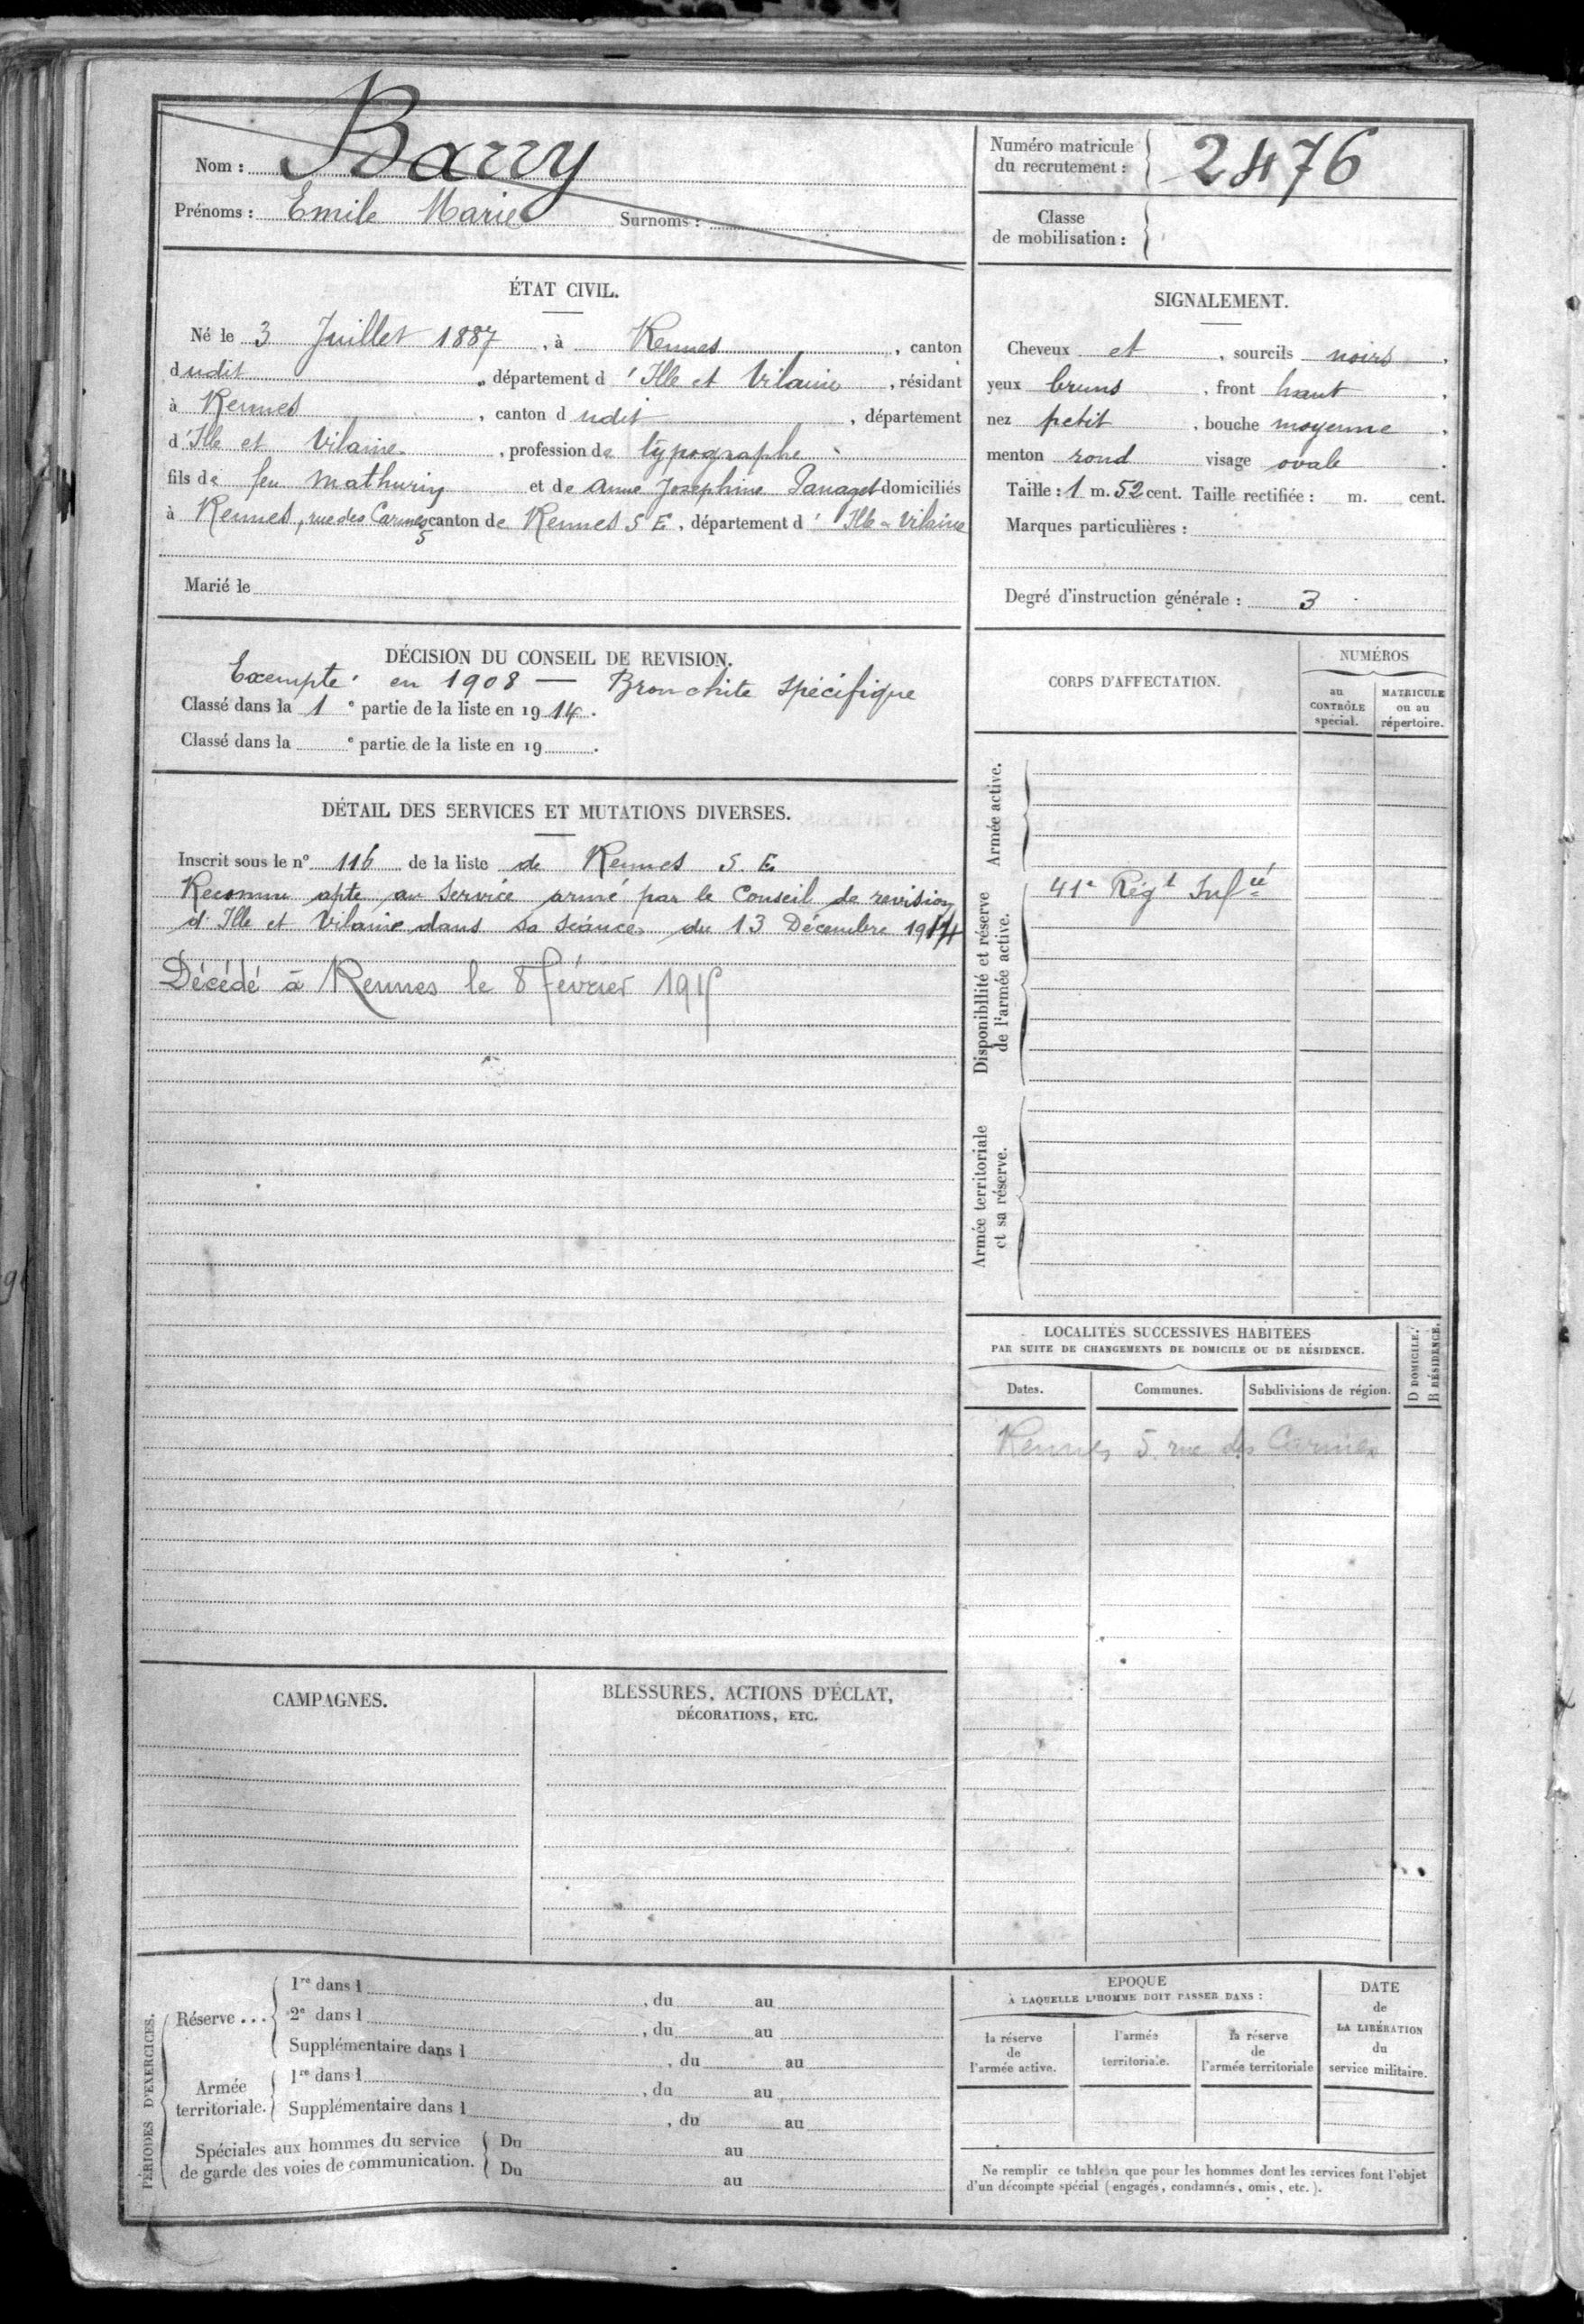 Nom : Barry
Prénoms : Emile Marie Surnoms :
Numéro matricule
du recrutement : 2476
Classe
de mobilisation :
ÉTAT CIVIL.
Né le 3 Juillet 1887, à Rennes, canton
dudit, département d'Ille et Vilaine, résidant
à Rennes, canton dudit, département
d'Ille et Vilaine, profession de typographe
fils de feu Mathurin et de Anne Josephine domiciliés
à Rennes, rue des Carmes 5 canton de Rennes S E, département d'Ille-Vilaine
Marié le
SIGNALEMENT.
Cheveux et, sourcils noirs,
yeux bruns, front haut,
nez petit, bouche moyenne,
menton rond visage ovale.
Taille : 1 m. 52 cent. Taille rectifiée : m. cent.
Marques particulières :
Degré d'instruction générale : 3
DÉCISION DU CONSEIL DE REVISION.
Exempté en 1908 — Bronchite spécifique
Classé dans la 1e partie de la liste en 1914.
Classé dans la e partie de la liste en 19 .
DÉTAIL DES SERVICES ET MUTATIONS DIVERSES.
Inscrit sous le n° 116 de la liste de Rennes S. E.
Reconnu apte au Service armé par le Conseil de revision
d'Ille et Vilaine dans sa séance du 13 Décembre 1914
Décédé à Rennes le 8 février 1915
CORPS D'AFFECTATION.
NUMÉROS
au
CONTRÔLE
spécial.
MATRICULE
ou au
répertoire.
Armée active.
Disponibilité et réserve
de l'armée active.
41e Régt Infie
Armée territoriale
et sa réserve.
LOCALITÉS SUCCESSIVES HABITÉES
PAR SUITE DE CHANGEMENTS DE DOMICILE OU DE RÉSIDENCE.
D DOMICILE.
R RÉSIDENCE.
Dates. Communes. Subdivisions de région.
Rennes 5 rue des Carmes
CAMPAGNES.
BLESSURES, ACTIONS D'ÉCLAT,
DÉCORATIONS, ETC.
PÉRIODES D'EXERCICES.
Réserve ...
1re dans l , du au
2e dans l , du au
Supplémentaire dans l , du au
Armée
territoriale.
1re dans l , du au
Supplémentaire dans l , du au
Spéciales aux hommes du service
de garde des voies de communication.
Du au
Du au
EPOQUE
À LAQUELLE L'HOMME DOIT PASSER DANS :
la réserve
de
l'armée active.
l'armée
territoriale.
la réserve
de
l'armée territoriale
DATE
de
LA LIBÉRATION
du
service militaire.
Ne remplir ce tableau que pour les hommes dont les services font l'objet
d'un décompte spécial (engagés, condamnés, omis, etc.).